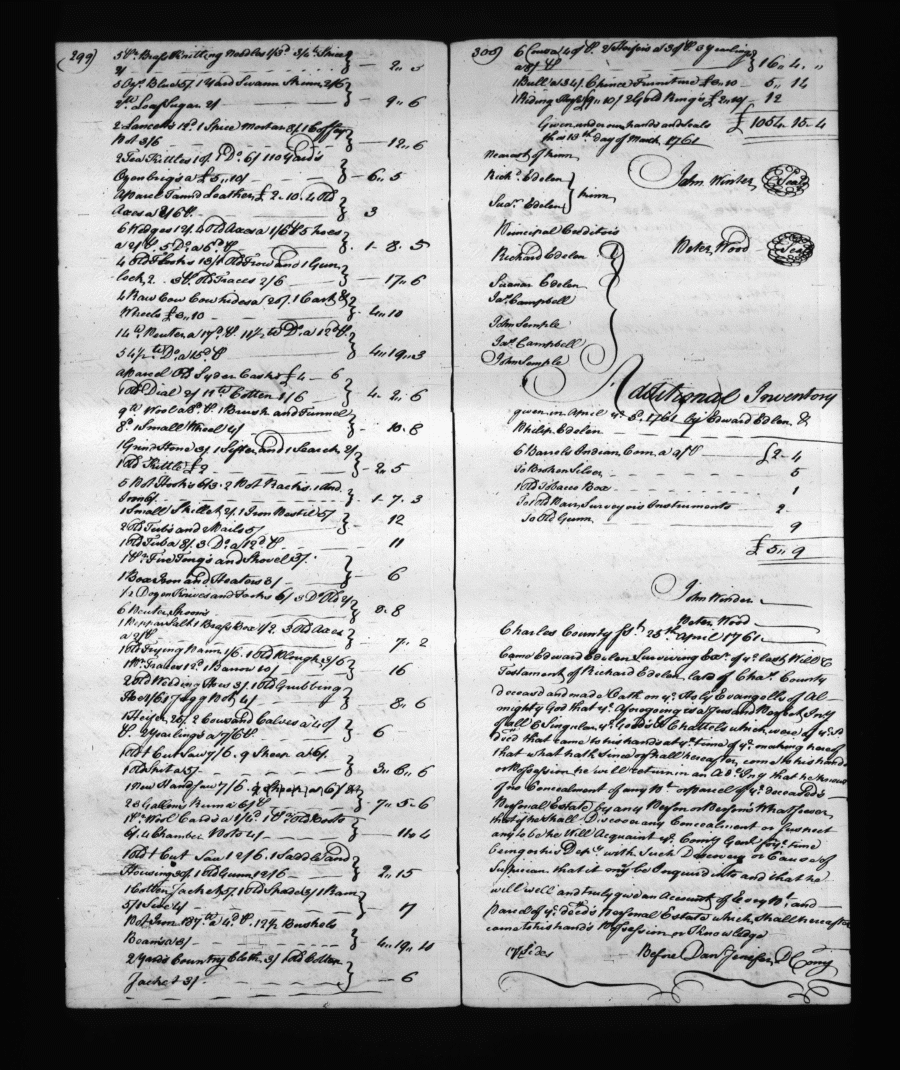 299
5 Pr. Brass Knitting Needles 1/3d 3/4 lb Spice
2/ — 2 .. 5
5 Ozs. Blue 5/. 1 Yard Swann Skinn 2/6
2 lb Loaf Sugar 2/ — 9 .. 6
2 Lancetts 12d. 1 Spice Mortar 8/. 1 Coffee
Pot 3/6 — 12 .. 6
2 Tea Kettles 10/. 1 Do. 6/ 110 Yards
Ozenbrigs a £5 .. 10/ — 6 .. 5
a Parcel Tann'd Leather, £2 .. 10. 4 Old
Axes a 2/6 — 3
6 Wedges 12/. 4 Old Axes a 1/6 5 hoes
a 2/ 5 Do. a 6d. — 1 .. 8 .. 5
4 Old Forks 13/ 1 Old Frow and 1 Gun
lock 2 Old Traces 2/6 — 17 .. 6
4 Raw Cow Cowhides a 20/. 1 Cart &
Wheels £3 .. 10 — 4 .. 10
14 lb. Pewter a 17d. 11 1/2 lb Do. a 12d
54 1/2 lb Do. a 15d — 4 .. 19 .. 3
a Parcel Old Syder Casks £4 — 6
1 Old Dial 2/ 17 lb Cotten 1/6 — 4 .. 2 .. 6
9 lb. Wool a 8d. 1 Brush and Funnel
8d. 1 Small Wheel 4/ — 10 .. 8
1 Grind Stone 3/. 1 Sifter and 1 Search 2/
1 Old Kettle £2 — 2 .. 5
5 Pot Hooks 6/3. 2 Pot Racks. 1 And
Iron 6/. — 1 .. 7 .. 3
1 Small Skillet 2/. 1 Iron Pestil 5/
2 Old Tubs and Pails 5/ — 12
1 Old Tub a 8/. 3 Do. a 12d — 11
1 Pr. Fire Tongs and Shovel 3/.
1 Box Iron and Heaters 3/ — 6
1/2 Dozen Knives and Forks 6/ 3 Do. Old 2/
6 Pewter Spoons — 8 .. 8
1 Pepper Salt 1 Brass Box 1/2. 3 Old Axes
a 2/ — 7 .. 2
1 Old Frying Pann 1/6. 1 Old Plough 3/6
1 Pr. Traces 12d. 1 Barrow 10/ — 16
2 Old Wedding Hoes 3/. 1 Old Grubbing
Hoe 1/6 1 Fagg Pot 4/ — 8 .. 6
1 Heifer 20/. 2 Cows and Calves a 40/
2 Yearlings a 7/6 — 6
1 Old + Cut Saw 7/6. 9 Sheep a 6/.
1 Old Spit a 5/ — 3 .. 6 .. 6
1 New Hand Saw 7/6. 9 Sheep a 6/8
23 Gallons Rum a 6/ — 7 .. 5 .. 6
1 Pr. Wool Cards a 1/6. 1 Pr. Old Boots
6/. 4 Chamber Pots 4/ — 11 .. 4
1 Old + Cut Saw 12/6. 1 Saddle and
Housing 30/. 1 Old Gunn 12/6 — 2 .. 15
1 Cotten Jacket 5/. 1 Old Spade 3/. 1 Pann
5/. 1 Sive 4/ — 17
Pot Iron 137 lb. a 4d. 12 1/2 Bushels
Beans a 3/ — 4 .. 19 .. 10
2 Yards Country Cloth 3/ 1 Old Cotten
Jacket 3/ — 6
300
6 Cows a 40/. 2 Heifers a 30/ 3 yearlings
a 8/ — 16 .. 4 .. "
1 Bull a 34/. Chince Furniture £3 .. 10 — 5 .. 14
1 Riding 2 Gold Rings £2 .. 10/ — 12
Given under our hands and Seals £1054 .. 15 .. 4
this 13th day of March 1761
Nearest of Kinn
John Winter Seal
Richd. Edelen
Susa. Edelen } Kinn
Principal Creditors
Peter Wood Seal
Richard Edelen
Susana Edelen
Jas. Campbell
John Semple
Jas. Campbell
John Semple
Additional Inventory
given in April ye. 8d. 1761 by Edward Edelen &
Philip Edelen
6 Barrels Indian Corn a 9/ — £2 .. 4
To Broken Silver — 5
1 Old Tobacco Box — 1
To 1 Old Pair Surveyors Instruments — 2 ..
To Old Gunn — 9
£5 .. 9
John Winter
Peter Wood
Charles County Sst. 25th April 1761
Came Edward Edelen Surviving Exr. of ye. last Will &
Testament of Richard Edelen late of Chas. County
deceased and made Oath on ye. Holy Evangells of Al
mighty God that ye. Aforegoing is a Just and Perfect Inty
of all & Singular ye. Goods & Chattels which were of ye. sd
Decd. that came to his hands at ye. time of ye. making hereof
that what hath Since or shall hereafter come to his hands
or Possession he will return in an Ad. Inty that he knows
of no Concealment of any Pt. or Parcel of ye. deceased's
Personal Estate by any Person or Persons Whatsoever
that if he Shall Discover any Concealment or Suspect
any to be he Will Acquaint ye. County Genl. for ye. time
being or his Depy. with Such Discovery or Cause of
Suspicion that it may be Enquired into and that he
will well and truly give an Account of Every Pt. and
Parcel of ye. Deced's Personal Estate which Shall hereafter
come to his hands Possession or Knowledge
17 Sides Before Danl. Jenifer D Comy